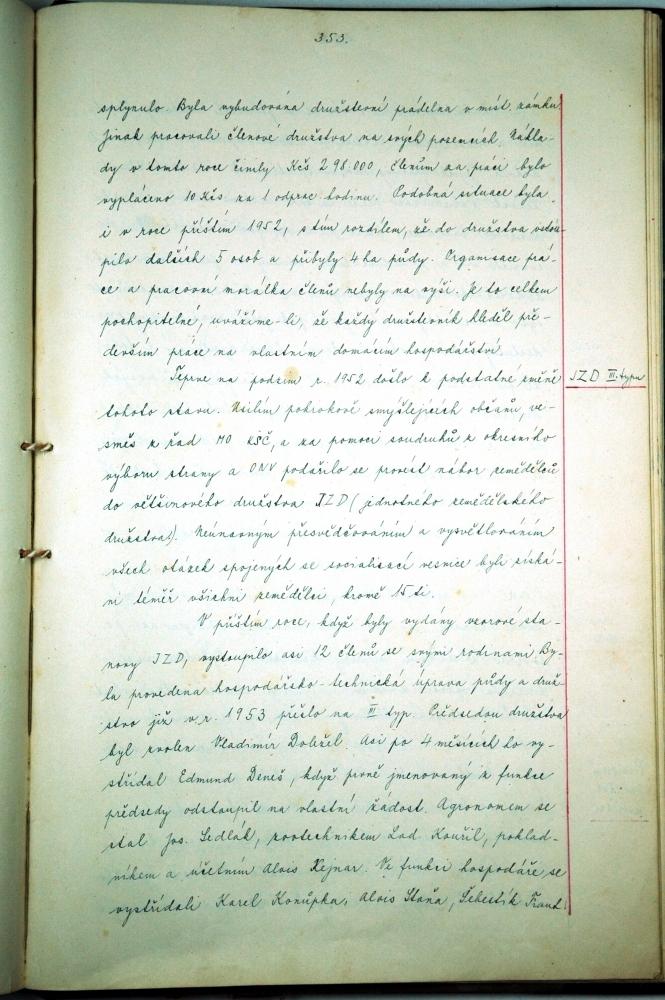 353.
splynulo. Byla vybudována družstevní prádelna v míst. zámku
Jinak pracovali členové družstva na svých pozemcích. Nákla-
dy v tomto roce činily Kčs 298.000, členům za práci bylo
vypláceno 10 Kčs za 1 odprac. hodinu. Podobná situace byla
i v roce příštím 1952, s tím rozdílem, že do družstva vstou-
pilo dalších 5 osob a přibyly 4 ha půdy. Organisace prá-
ce a pracovní morálka členů nebyly na výši. Je to celkem
pochopitelné, uvážíme-li, že každý družstevník hleděl pře-
devším práce na vlastním domácím hospodářství.
Teprve na podzim r. 1952 došlo k podstatné změně
JZD III. typu
tohoto stavu. Úsilím pokrokově smýšlejících občanů, ve-
směs z řad MO KSČ, a za pomoci soudruhů z okresního
výboru strany a ONV podařilo se provést nábor zemědělců
do většinového družstva JZD (jednotného zemědělského
družstva). Neúnavným přesvědčováním a vysvětlováním
všech otázek spojených se socialisací vesnice byli získá-
ni téměř všichni zemědělci, kromě 15 ti.
V příštím roce, když byly vydány vzorové sta-
novy JZD, vystoupilo asi 12 členů se svými rodinami. By-
la provedena hospodářsko-technická úprava půdy a druž-
stvo již v r. 1953 přešlo na III typ. Předsedou družstva
byl zvolen Vladimír Doležel. Asi po 4 měsících ho vy-
střídal Edmund Deneš, když prvně jmenovaný z funkce
předsedy odstoupil na vlastní žádost. Agronomem se
stal Jos. Sedlák, zootechnikem Lad. Kouřil, poklad-
níkem a účetním Alois Rejnar. Ve funkci hospodáře se
vystřídali Karel Konůpka, Alois Staňa, Šebestík Frant.